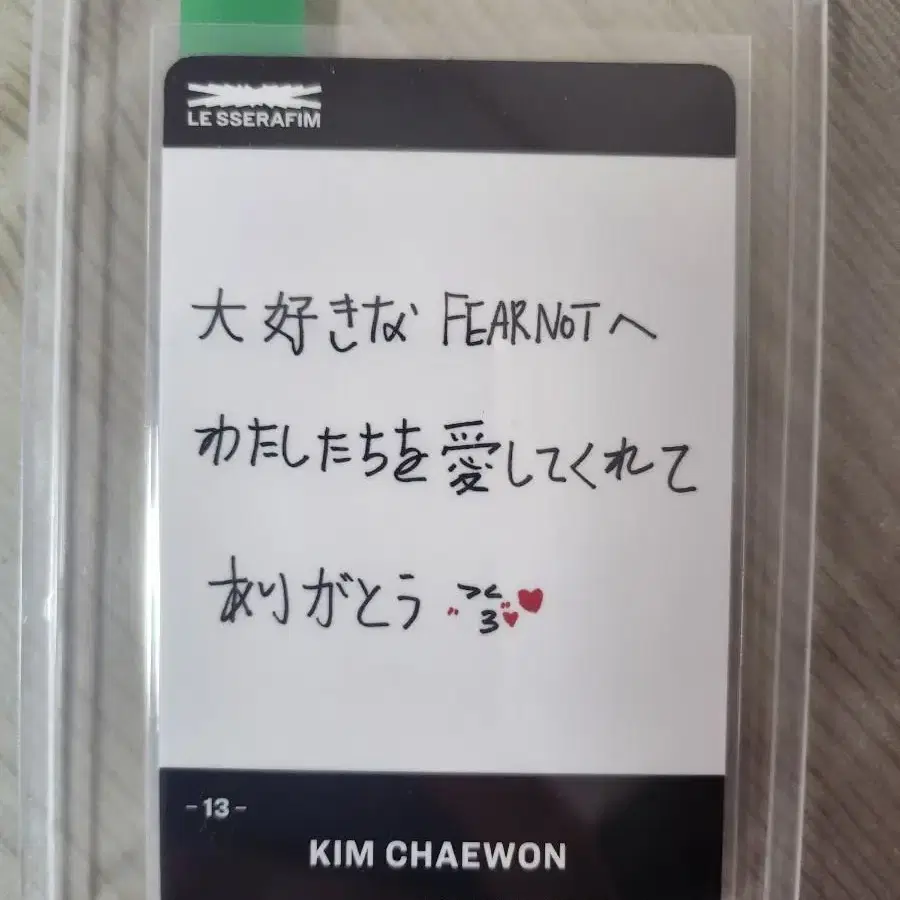 LE SSERAFIM
大好きな FEARNOTへ
わたしたちを愛してくれて
ありがとう
-13-
KIM CHAEWON